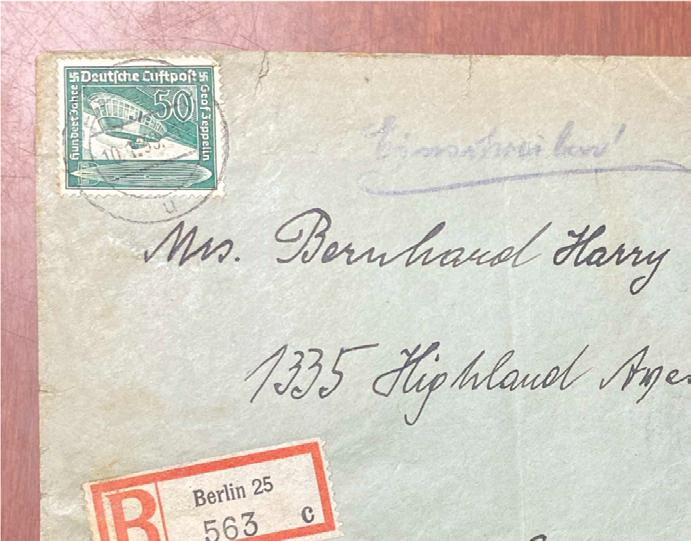 Deutsche Luftpost
Hundert Jahre
50
Graf Zeppelin
Einschreiben!
Mrs. Bernhard Harry
1335 Highland Ave
R
Berlin 25
563 c